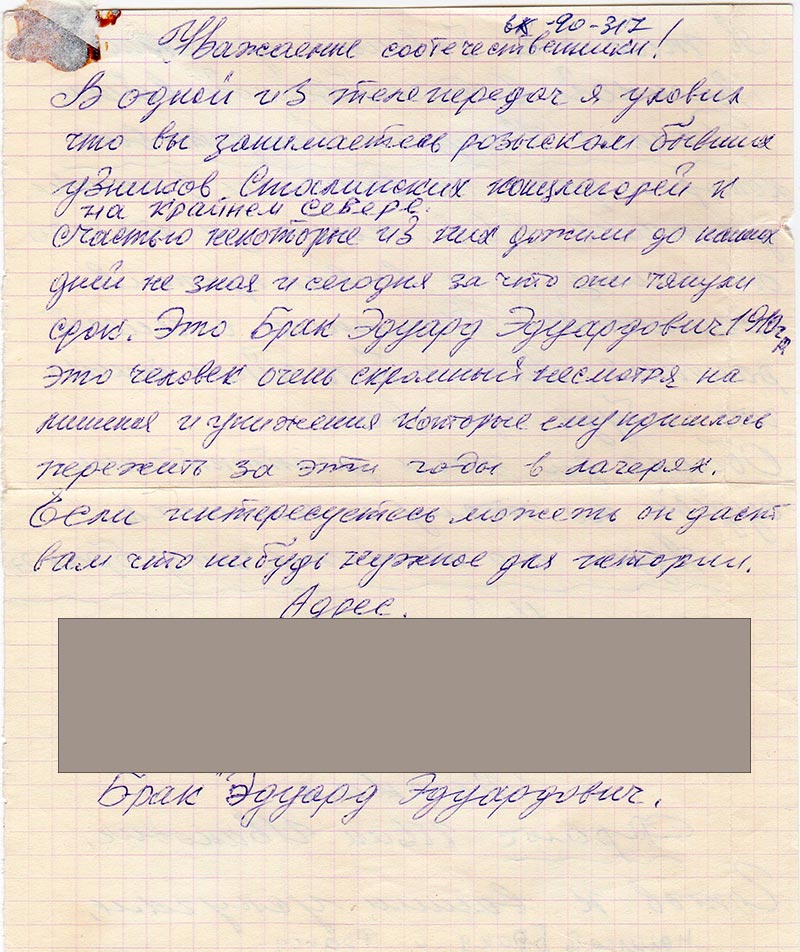 вх-90-317
Уважаемые соотечественники!
В одной из телепередач я уловил
что вы занимаетесь розыском бывших
узников Сталинских концлагерей к
на крайнем севере.
счастью некоторые из них дожили до наших
дней не зная и сегодня за что они тянули
срок. Это Брак Эдуард Эдуардович
это человек очень скромный несмотря на
лишения и унижения которые ему пришлось
пережить за эти годы в лагерях.
Если интересуетесь можеть он даст
вам что нибудь нужное для истории.
Адрес.
Брак Эдуард Эдуардович.